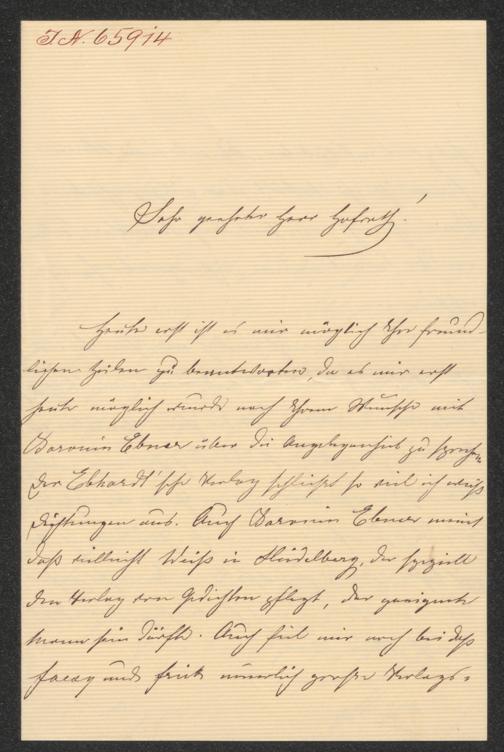 I.N. 65914
Sehr geehrter Herr Hofrath!
Heute erst ist es mir möglich Ihre freund-
lichen Zeilen zu beantworten, da es mir erst
heute möglich wurde nach Ihrem Wunsche mit
Baronin Ebner über die Angelegenheit zu sprechen
Der Ebhardt'sche Verlag schließt so viel ich weiß
Dichtungen aus. Auch Baronin Ebner meint
daß vielleicht Weiß in Heidelberg, der speziell
den Verlag von Gedichten pflegt, der geeignete
Mann sein dürfte. Auch fiel mir noch bei daß
und Frick neuerlich große Verlags-